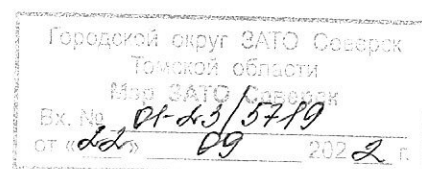 Городской округ ЗАТО Северск
Томской области
Мэр ЗАТО Северск
Вх. № 01-23/5719
от «22» 09 2022 г.